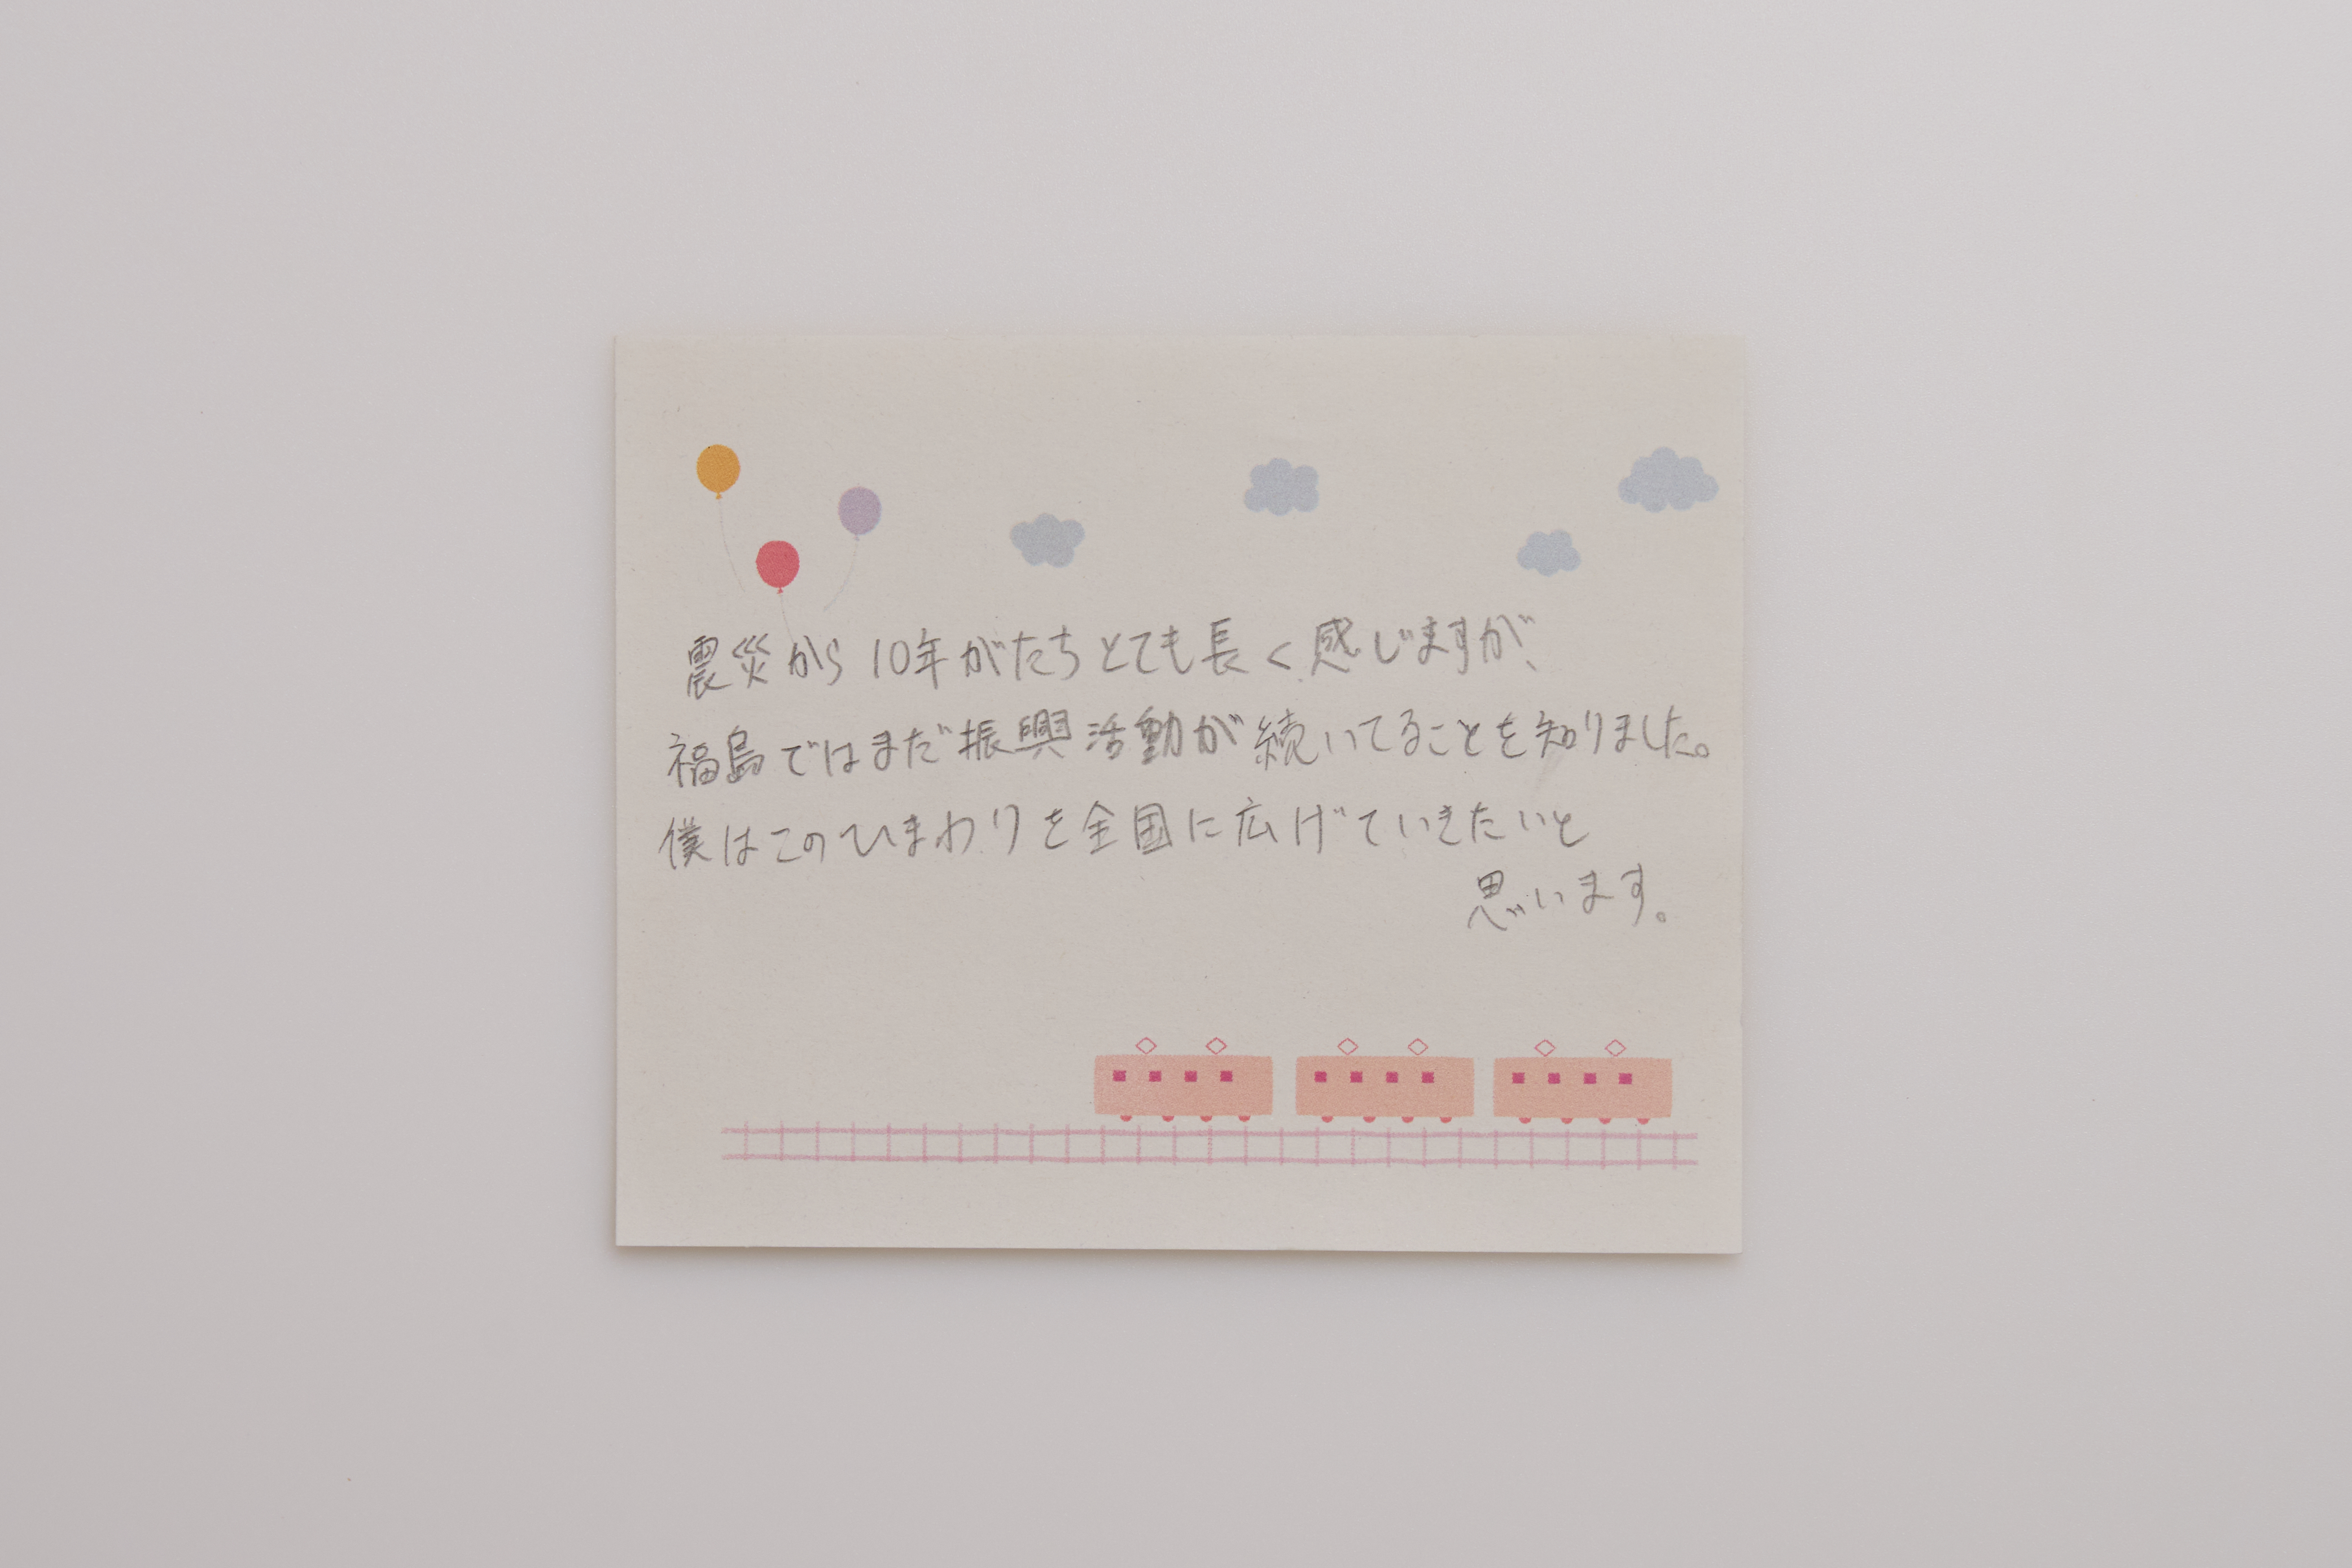 震災から10年がたちとても長く感じますが、
福島ではまだ振興活動が続いてることを知りました。
僕はこのひまわりを全国に広げていきたいと
思います。